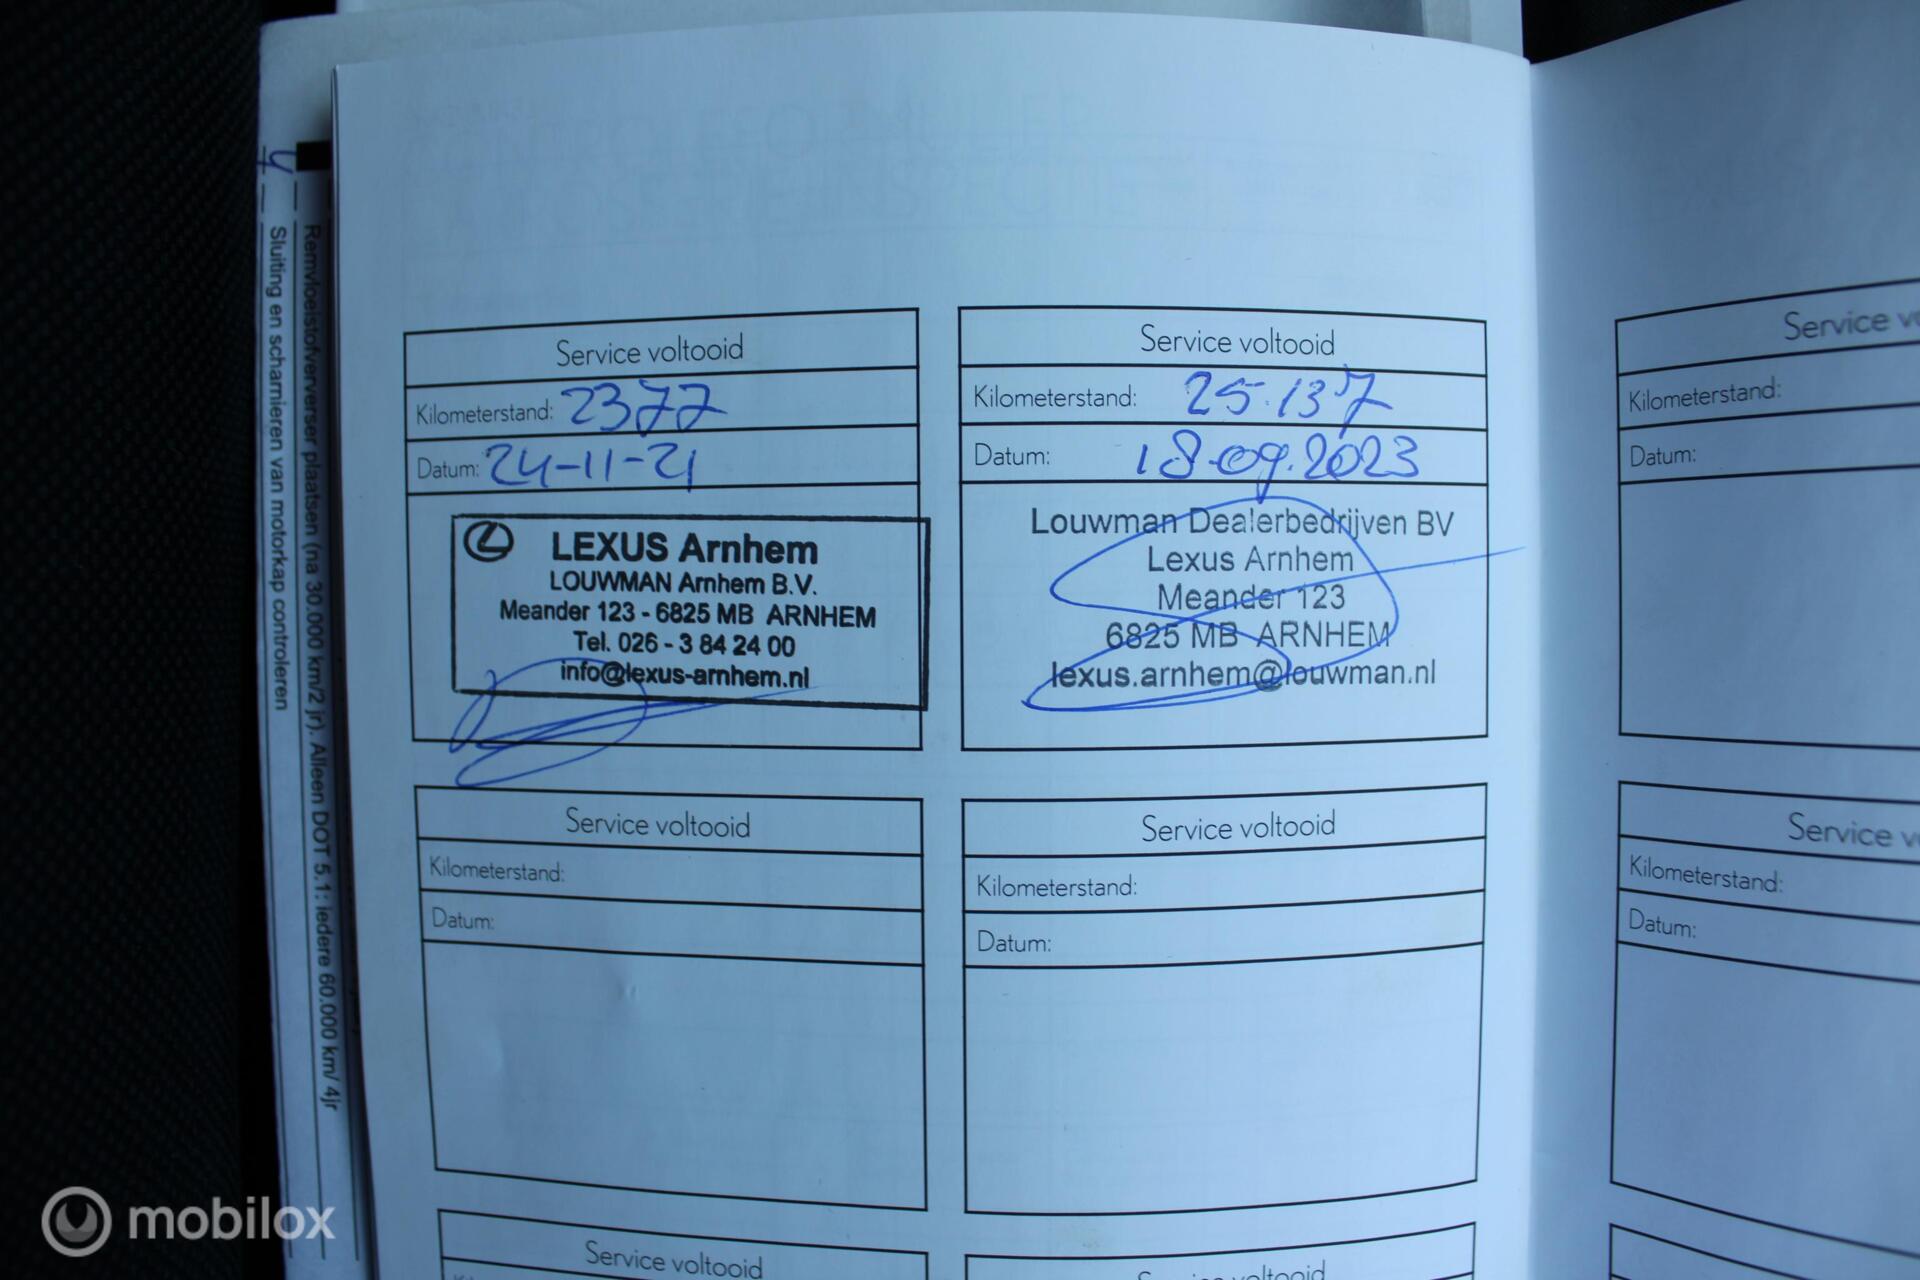 Remvloeistofververser plaatsen (na 30.000 km/2 jr). Alleen DOT 5.1: iedere 60.000 km/ 4jr
Sluiting en scharnieren van motorkap controleren
Service voltooid
Kilometerstand: 2377
Datum: 24-11-21
LEXUS Arnhem
LOUWMAN Arnhem B.V.
Meander 123 - 6825 MB ARNHEM
Tel. 026 - 3 84 24 00
info@lexus-arnhem.nl
Service voltooid
Kilometerstand: 25.137
Datum: 18.09.2023
Louwman Dealerbedrijven BV
Lexus Arnhem
Meander 123
6825 MB ARNHEM
lexus.arnhem@louwman.nl
Service vo
Kilometerstand:
Datum:
Service voltooid
Kilometerstand:
Datum:
Service voltooid
Kilometerstand:
Datum:
Service vo
Kilometerstand:
Datum:
Service voltooid
Service voltooid
mobilox